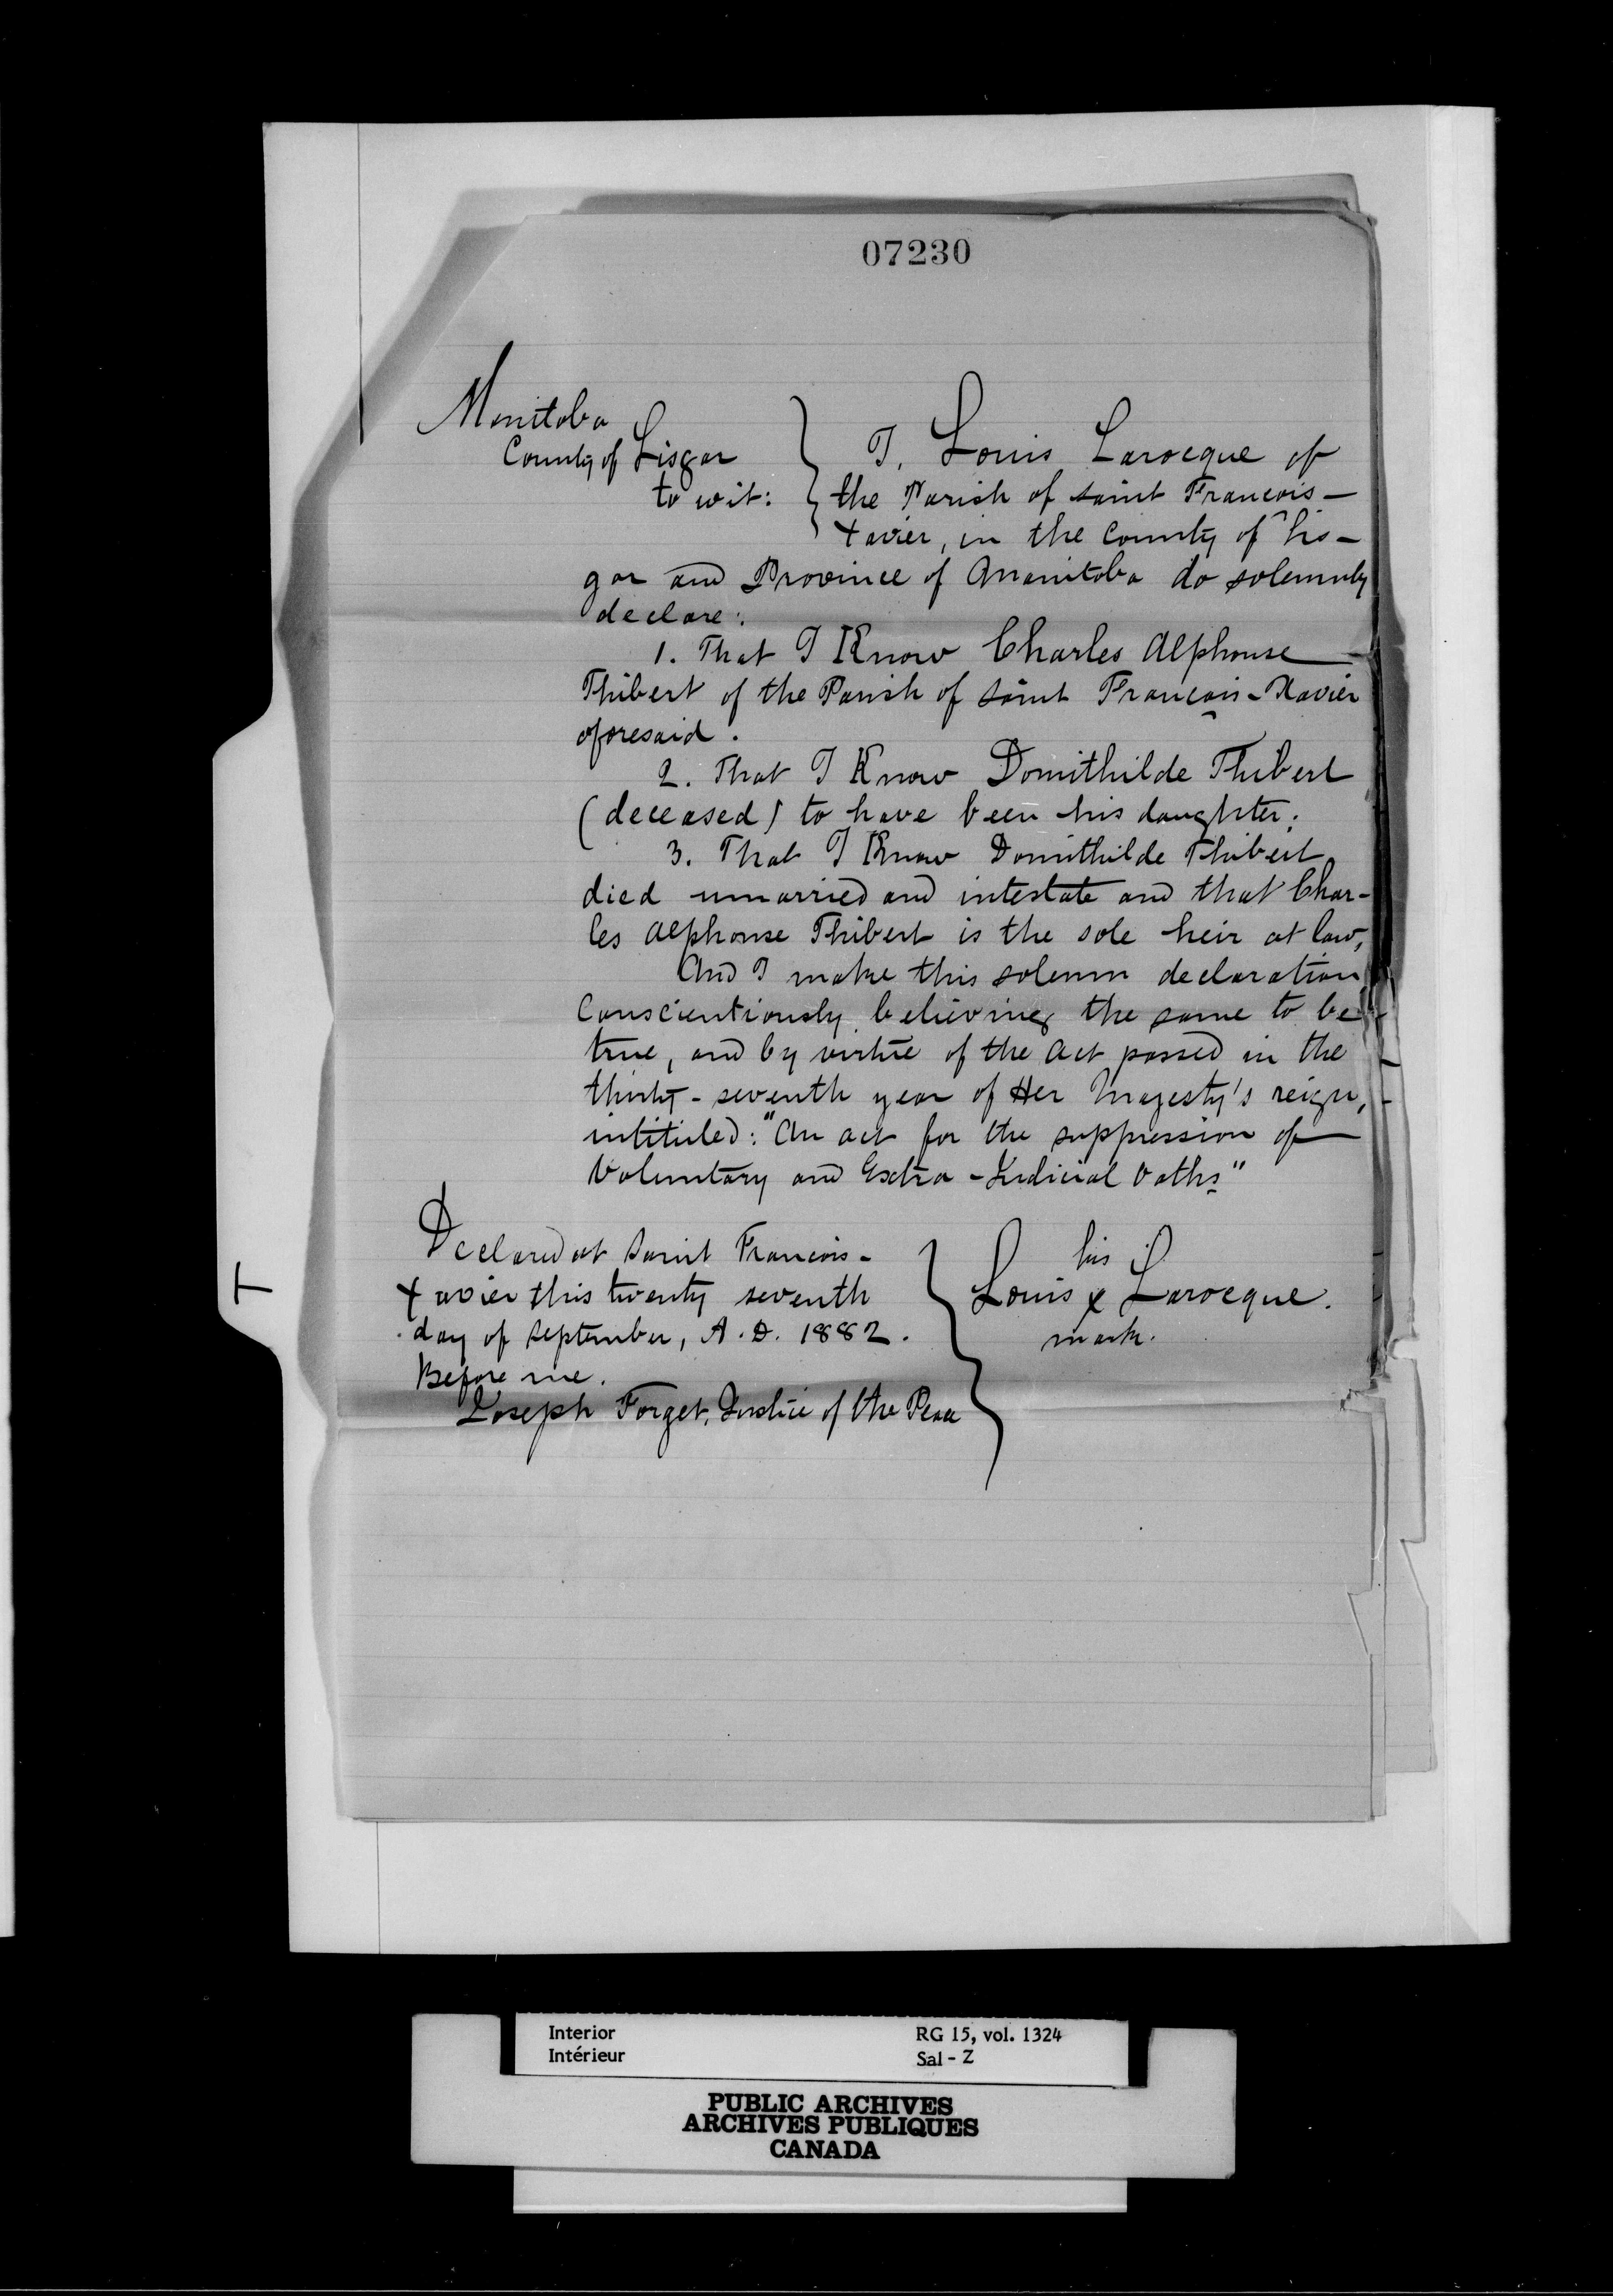 07230
Manitoba
County of Lisgar
to wit:
I, Louis Larocque of
the Parish of saint Francois-
Xavier, in the County of Lis-
gar and Province of Manitoba do solemnly
declare:
1. That I Know Charles Alphonse
Thibert of the Parish of saint François-Xavier
aforesaid.
2. That I Know Domithilde Thibert
(deceased) to have been his daughter;
3. That I Know Domithilde Thibert
died unmarried and intestate and that Char-
les Alphonse Thibert is the sole heir at law,
And I make this solemn declaration
Conscientiously believing the same to be
true, and by virtue of the Act passed in the
thirty-seventh year of Her Majesty's reign,
intituled: "An act for the suppression of
Voluntary and Extra-Judicial Oaths"
Declared at Saint Francois-
Xavier this twenty seventh
day of September, A.D. 1882.
Before me.
Joseph Forget, Justice of the Peace
his
Louis x Larocque.
mark.
T
Interior RG 15, vol. 1324
Intérieur Sal - Z
PUBLIC ARCHIVES
ARCHIVES PUBLIQUES
CANADA